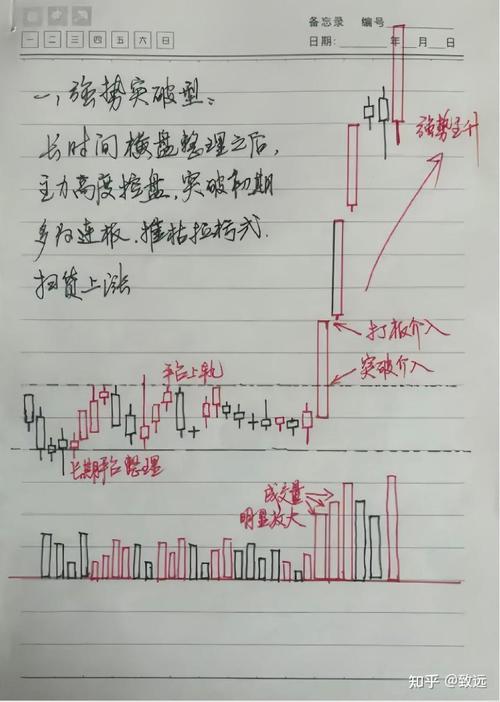 备忘录 编号
一 二 三 四 五 六 日
日期: 年 月 日
一、强势突破型:
长时间横盘整理之后,
主力高度控盘,突破初期
多为连板、摧枯拉朽式
扫货上涨
强势主升
打板介入
突破介入
平台上轨
长期平台整理
成交量
明显放大
知乎 @致远